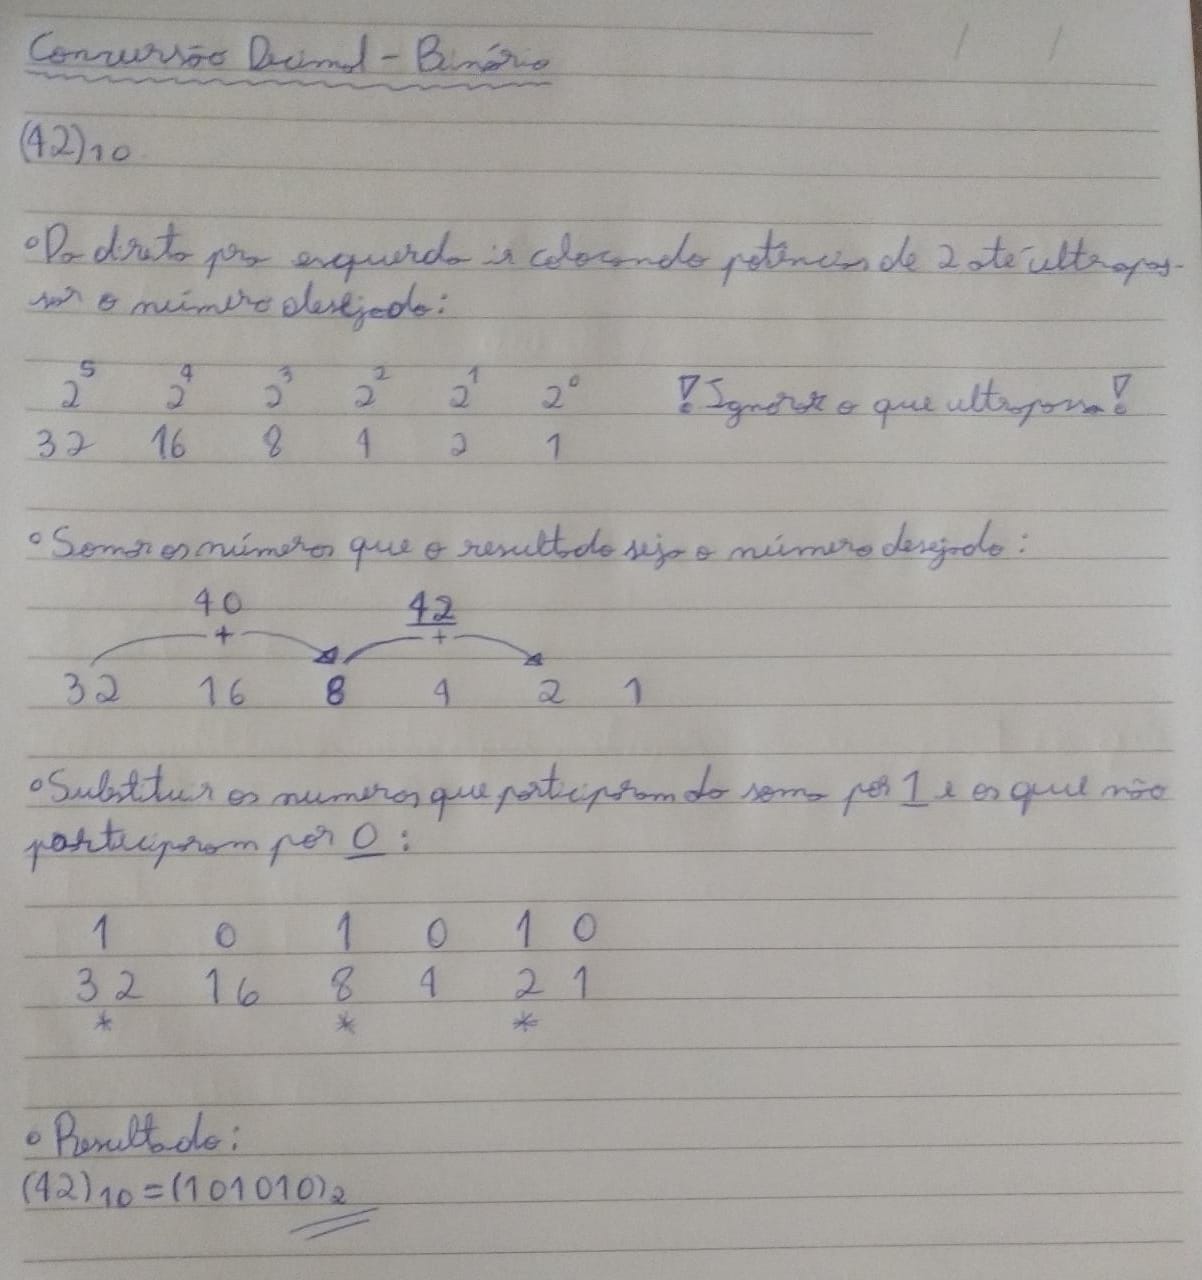 Conversão Decimal - Binário
(42)10
Da direita pra esquerda ir colocando potências de 2 até ultrapas-
sar o número desejado:
2^5 2^4 2^3 2^2 2^1 2^0 ! Ignorar o que ultrapassa!
32 16 8 4 2 1
Somar os números que o resultado seja o número desejado:
40 42
+ +
32 16 8 4 2 1
Substituir os numeros que participaram da soma por 1 e os que não
participaram por 0:
1 0 1 0 1 0
32 16 8 4 2 1
* * *
Resultado:
(42)10 = (101010)2